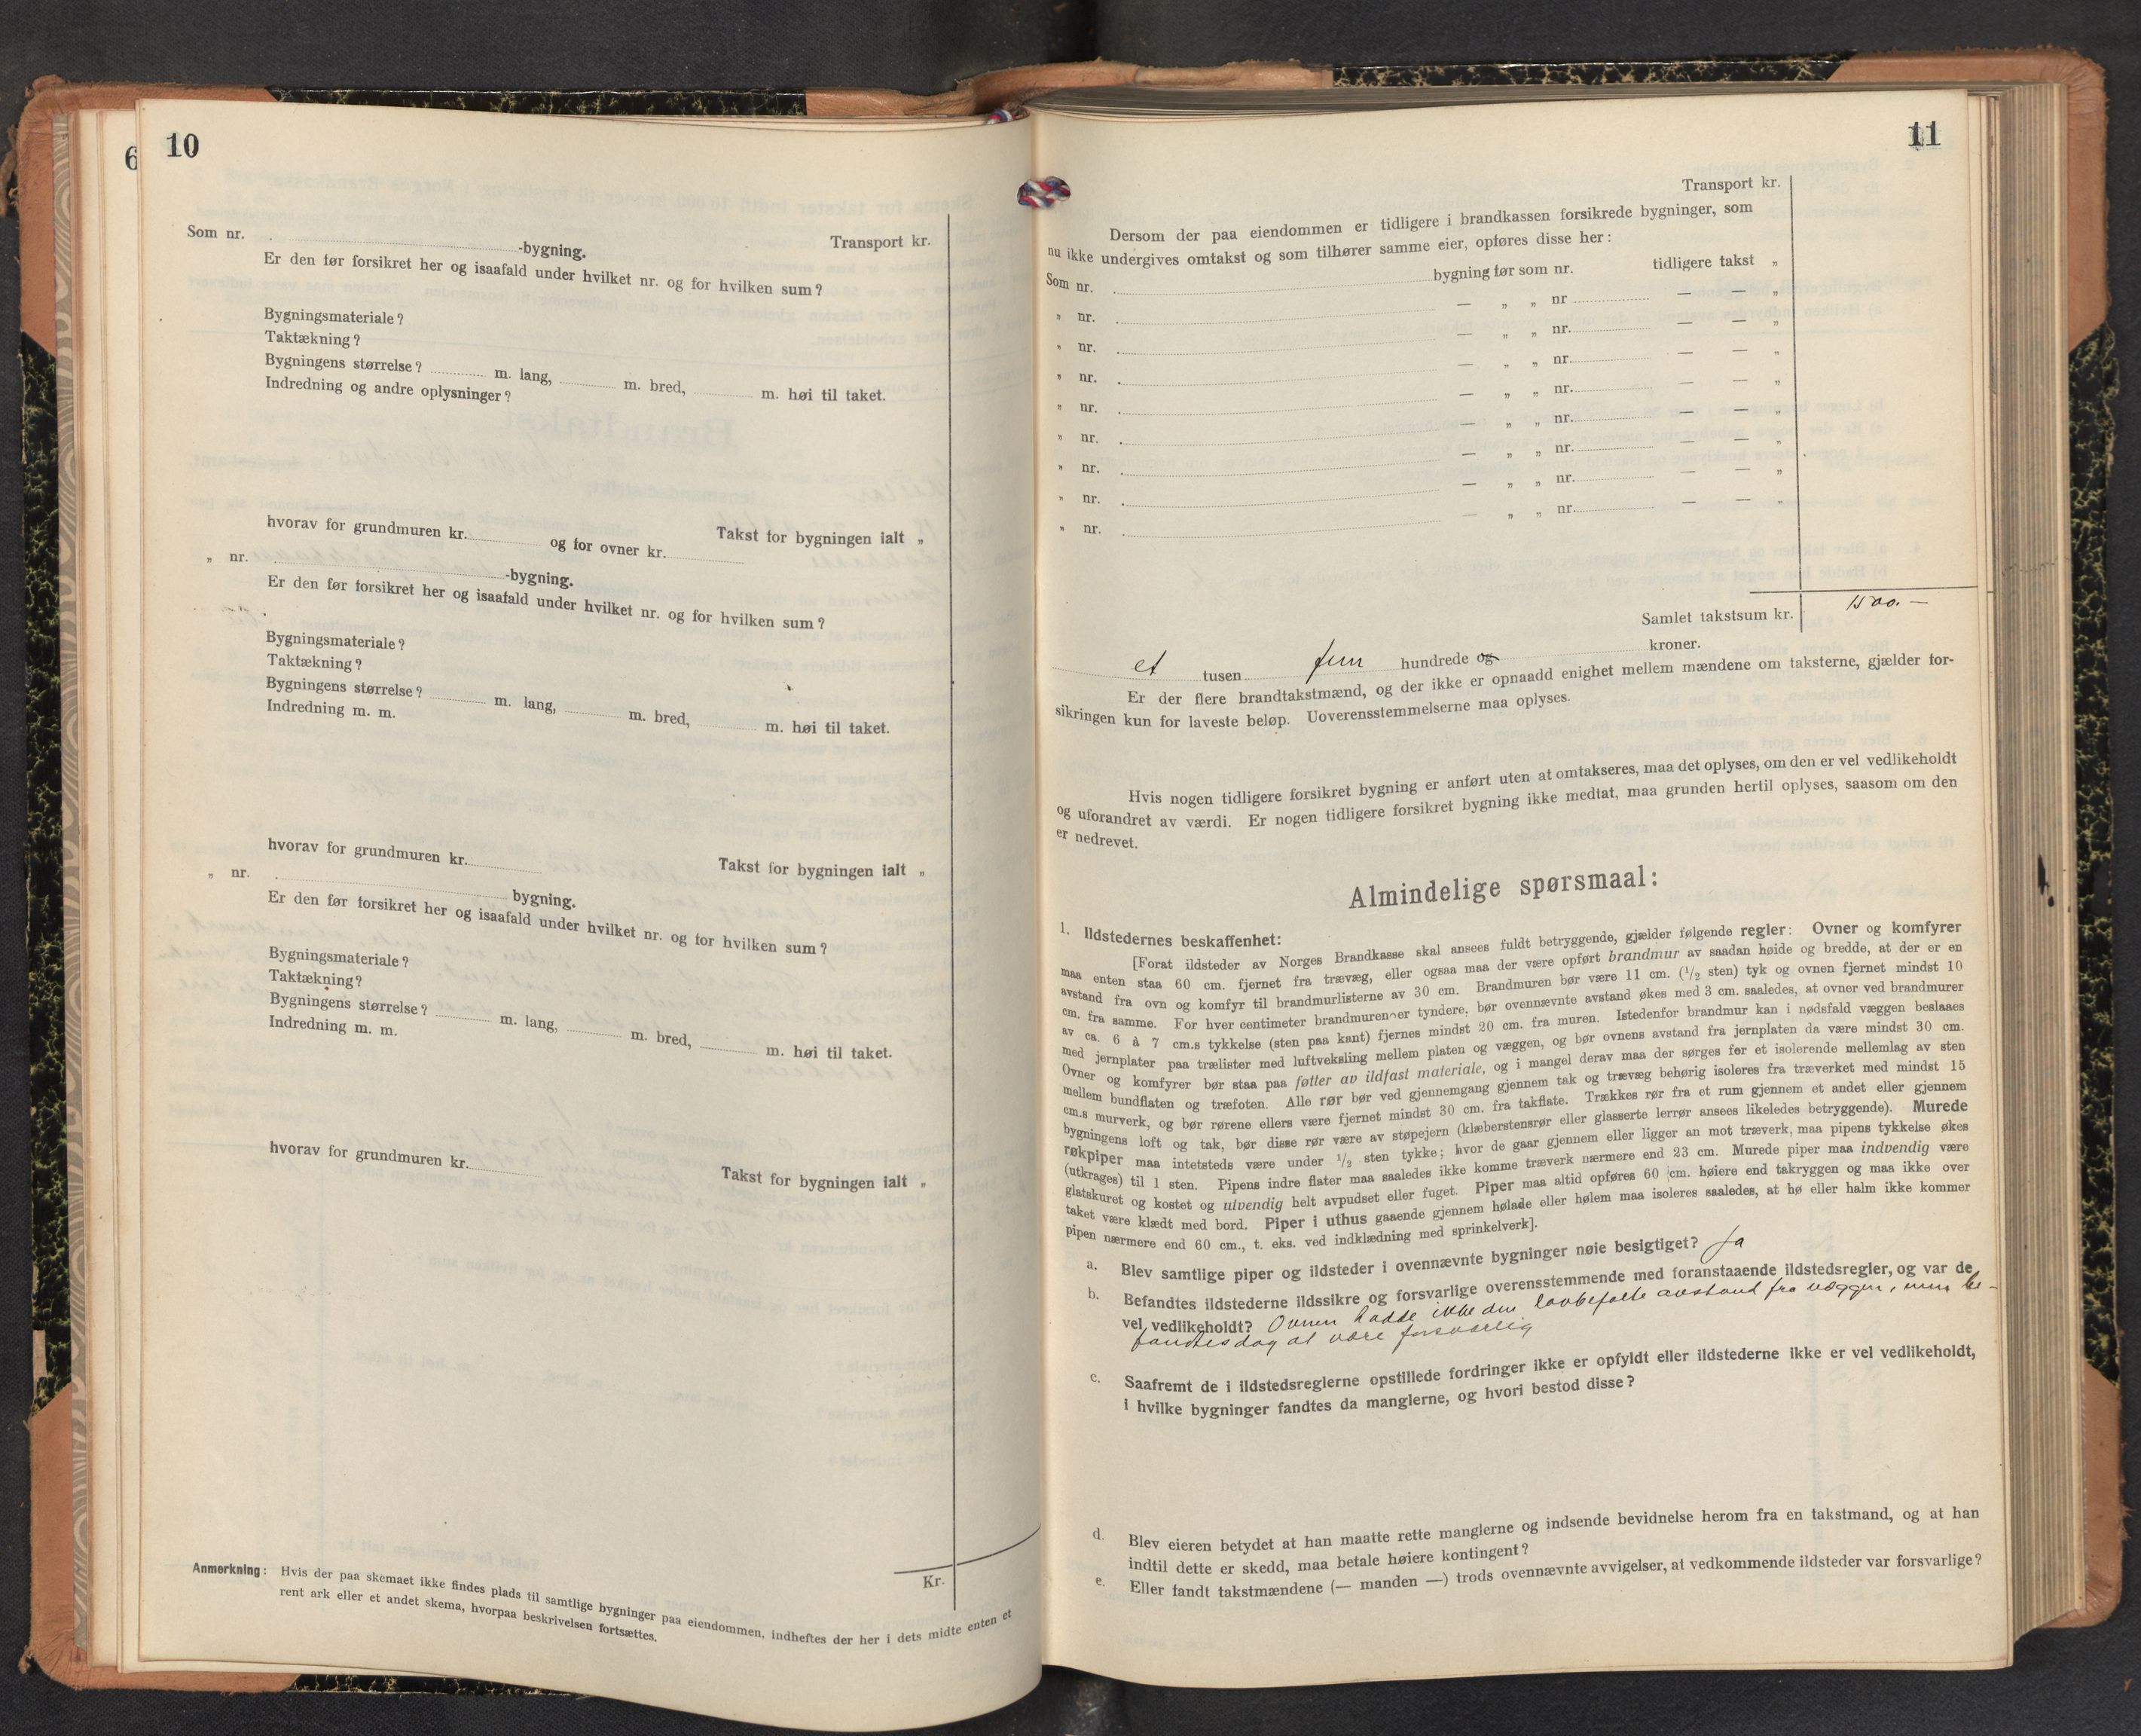 6
10
Som nr. -bygning. Transport kr.
Er den før forsikret her og isaafald under hvilket nr. og for hvilken sum?
Bygningsmateriale?
Taktækning?
Bygningens størrelse? m. lang, m. bred, m. høi til taket.
Indredning og andre oplysninger?
hvorav for grundmuren kr. og for ovner kr. Takst for bygningen ialt „
„ nr. -bygning.
Er den før forsikret her og isaafald under hvilket nr. og for hvilken sum?
Bygningsmateriale?
Taktækning?
Bygningens størrelse? m. lang, m. bred, m. høi til taket.
Indredning m. m.
hvorav for grundmuren kr. Takst for bygningen ialt „
„ nr. bygning.
Er den før forsikret her og isaafald under hvilket nr. og for hvilken sum?
Bygningsmateriale?
Taktækning?
Bygningens størrelse? m. lang, m. bred, m. høi til taket.
Indredning m. m.
hvorav for grundmuren kr. Takst for bygningen ialt „
Kr.
Anmerkning: Hvis der paa skemaet ikke findes plads til samtlige bygninger paa eiendommen, indheftes der her i dets midte enten et
rent ark eller et andet skema, hvorpaa beskrivelsen fortsættes.
11
Transport kr.
Dersom der paa eiendommen er tidligere i brandkassen forsikrede bygninger, som
nu ikke undergives omtakst og som tilhører samme eier, opføres disse her:
Som nr. bygning før som nr. tidligere takst „
„ nr. — „ „ nr — — „
„ nr. — „ „ nr. — — „
„ nr. — „ „ nr. — — „
„ nr. — „ „ nr. — — „
„ nr. — „ „ nr. — — „
„ nr. — „ „ nr. — — „
„ nr. — „ „ nr. — — „
„ nr. — „ „ nr. — — „
Samlet takstsum kr. 1500.—
et tusen fem hundrede og kroner.
Er der flere brandtakstmænd, og der ikke er opnaadd enighet mellem mændene om taksterne, gjælder for-
sikringen kun for laveste beløp. Uoverensstemmelserne maa oplyses.
Hvis nogen tidligere forsikret bygning er anført uten at omtakseres, maa det oplyses, om den er vel vedlikeholdt
og uforandret av værdi. Er nogen tidligere forsikret bygning ikke medtat, maa grunden hertil oplyses, saasom om den
er nedrevet.
Almindelige spørsmaal:
1. Ildstedernes beskaffenhet:
[Forat ildsteder av Norges Brandkasse skal ansees fuldt betryggende, gjælder følgende regler: Ovner og komfyrer
maa enten staa 60 cm. fjernet fra trævæg, eller ogsaa maa der være opført brandmur av saadan høide og bredde, at der er en
avstand fra ovn og komfyr til brandmurlisterne av 30 cm. Brandmuren bør være 11 cm. (1/2 sten) tyk og ovnen fjernet mindst 10
cm. fra samme. For hver centimeter brandmuren er tyndere, bør ovennævnte avstand økes med 3 cm. saaledes, at ovner ved brandmurer
av ca. 6 à 7 cm.s tykkelse (sten paa kant) fjernes mindst 20 cm. fra muren. Istedenfor brandmur kan i nødsfald væggen beslaaes
med jernplater paa trælister med luftveksling mellem platen og væggen, og bør ovnens avstand fra jernplaten da være mindst 30 cm.
Ovner og komfyrer bør staa paa føtter av ildfast materiale, og i mangel derav maa der sørges for et isolerende mellemlag av sten
mellem bundflaten og træfoten. Alle rør bør ved gjennemgang gjennem tak og trævæg behørig isoleres fra træverket med mindst 15
cm.s murverk, og bør rørene ellers være fjernet mindst 30 cm. fra takflate. Trækkes rør fra et rum gjennem et andet eller gjennem
bygningens loft og tak, bør disse rør være av støpejern (klæberstensrør eller glasserte lerrør ansees likeledes betryggende). Murede
røkpiper maa intetsteds være under 1/2 sten tykke; hvor de gaar gjennem eller ligger an mot træverk, maa pipens tykkelse økes
(utkrages) til 1 sten. Pipens indre flater maa saaledes ikke komme træverk nærmere end 23 cm. Murede piper maa indvendig være
glatskuret og kostet og utvendig helt avpudset eller fuget. Piper maa altid opføres 60 cm. høiere end takryggen og maa ikke over
taket være klædt med bord. Piper i uthus gaaende gjennem hølade eller hølem maa isoleres saaledes, at hø eller halm ikke kommer
pipen nærmere end 60 cm., t. eks. ved indklædning med sprinkelverk].
a. Blev samtlige piper og ildsteder i ovennævnte bygninger nøie besigtiget? Ja
b. Befandtes ildstederne ildssikre og forsvarlige overensstemmende med foranstaaende ildstedsregler, og var de
vel vedlikeholdt? Ovnen hadde ikke den lovbefalte avstand fra væggen, men be-
fandtes dog at være forsvarlig
c. Saafremt de i ildstedsreglerne opstillede fordringer ikke er opfyldt eller ildstederne ikke er vel vedlikeholdt,
i hvilke bygninger fandtes da manglerne, og hvori bestod disse?
d. Blev eieren betydet at han maatte rette manglerne og indsende bevidnelse herom fra en takstmand, og at han
indtil dette er skedd, maa betale høiere kontingent?
e. Eller fandt takstmændene (— manden —) trods ovennævnte avvigelser, at vedkommende ildsteder var forsvarlige?